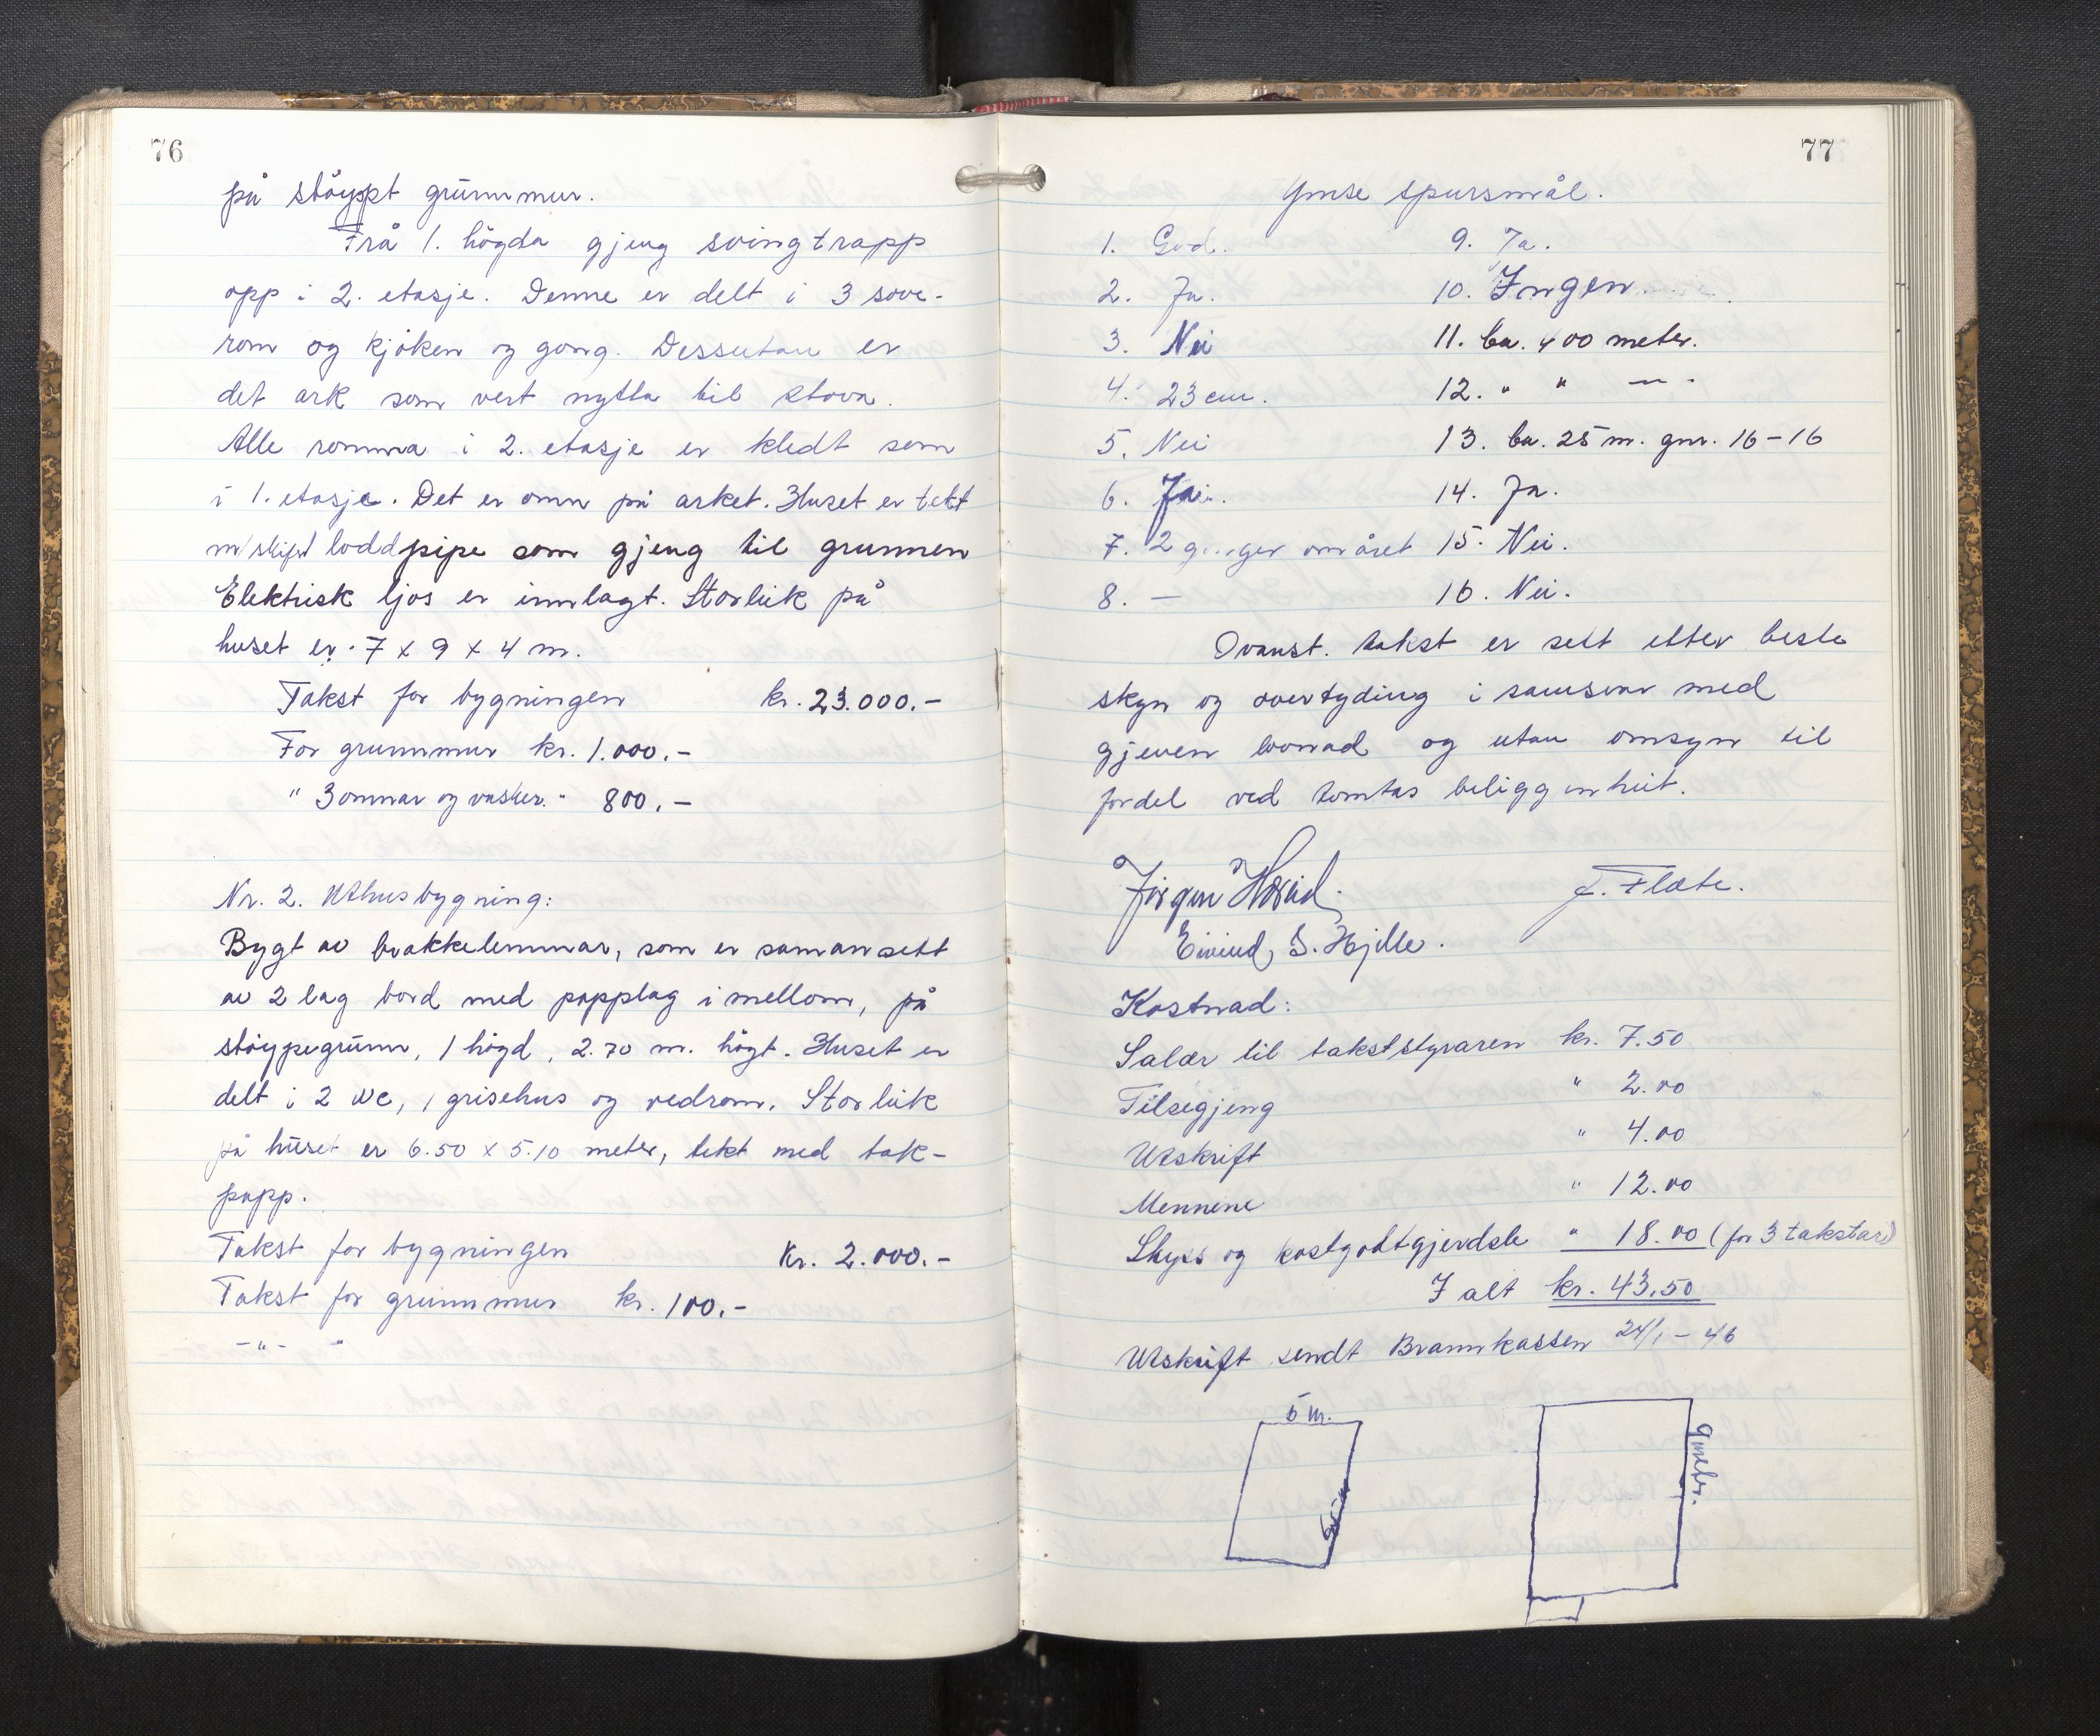 76
på støyppt grunnmur.
Frå 1. högda gjeng svingtrapp
opp i 2. etasje. Denne er delt i 3 sove-
rom og kjøken og gong. Dessutan er
det ark som vert nytta til stova.
Alle romma i 2. etasje er kledt som
i 1. etasje. Det er omn på arket. Huset er tekt
m/skifer loddpipe som gjeng til grunnen
Elektrisk ljos er innlagt. Storleik på
huset er 7 x 9 x 4 m.
Takst for bygningen kr. 23.000.-
For grunnmur kr. 1.000.-
" 3 omnar og vasker. " 800.-
Nr. 2. Uthusbygning:
Bygt av brakkelemmar, som er samansett
av 2 lag bord med papplag i mellom, på
støypegrunn, 1 högd, 2.70 m. högt. Huset er
delt i 2 WC, 1 grisehus og vedrom. Storleik
på huset er 6.50 x 5.10 meter, tekt med tak-
papp.
Takst for bygningen Kr. 2.000.-
Takst for grunnmur kr. 100.-
-"- "
77
Ymse spursmål.
1. God. 9. Ja.
2. Ja. 10. Ingen.
3. Nei 11. Ca. 400 meter.
4. 23 cm. 12. " " — -
5. Nei 13. Ca. 25 m. gnr. 16-16
6. Ja. 14. Ja.
7. 2 ganger om året 15. Nei.
8. — 16. Nei.
Ovanst. takst er sett etter beste
skyn og overtyding i samsvar med
gjeven lovnad og utan omsyn til
fordel ved tomtas beliggenheit.
Jörgen F. Flæte.
Eivind S. Hjelle.
Kostnad:
Salær til takststyraren kr. 7.50
Tilsegjeng " 2.00
Utskrift " 4.00
Mennene " 12.00
Skyss og kostgodtgjerdsle " 18.00 (for 3 takstar)
I alt kr. 43.50
Utskrift sendt Brannkassen 24/1-46
5 m.
9 meter.